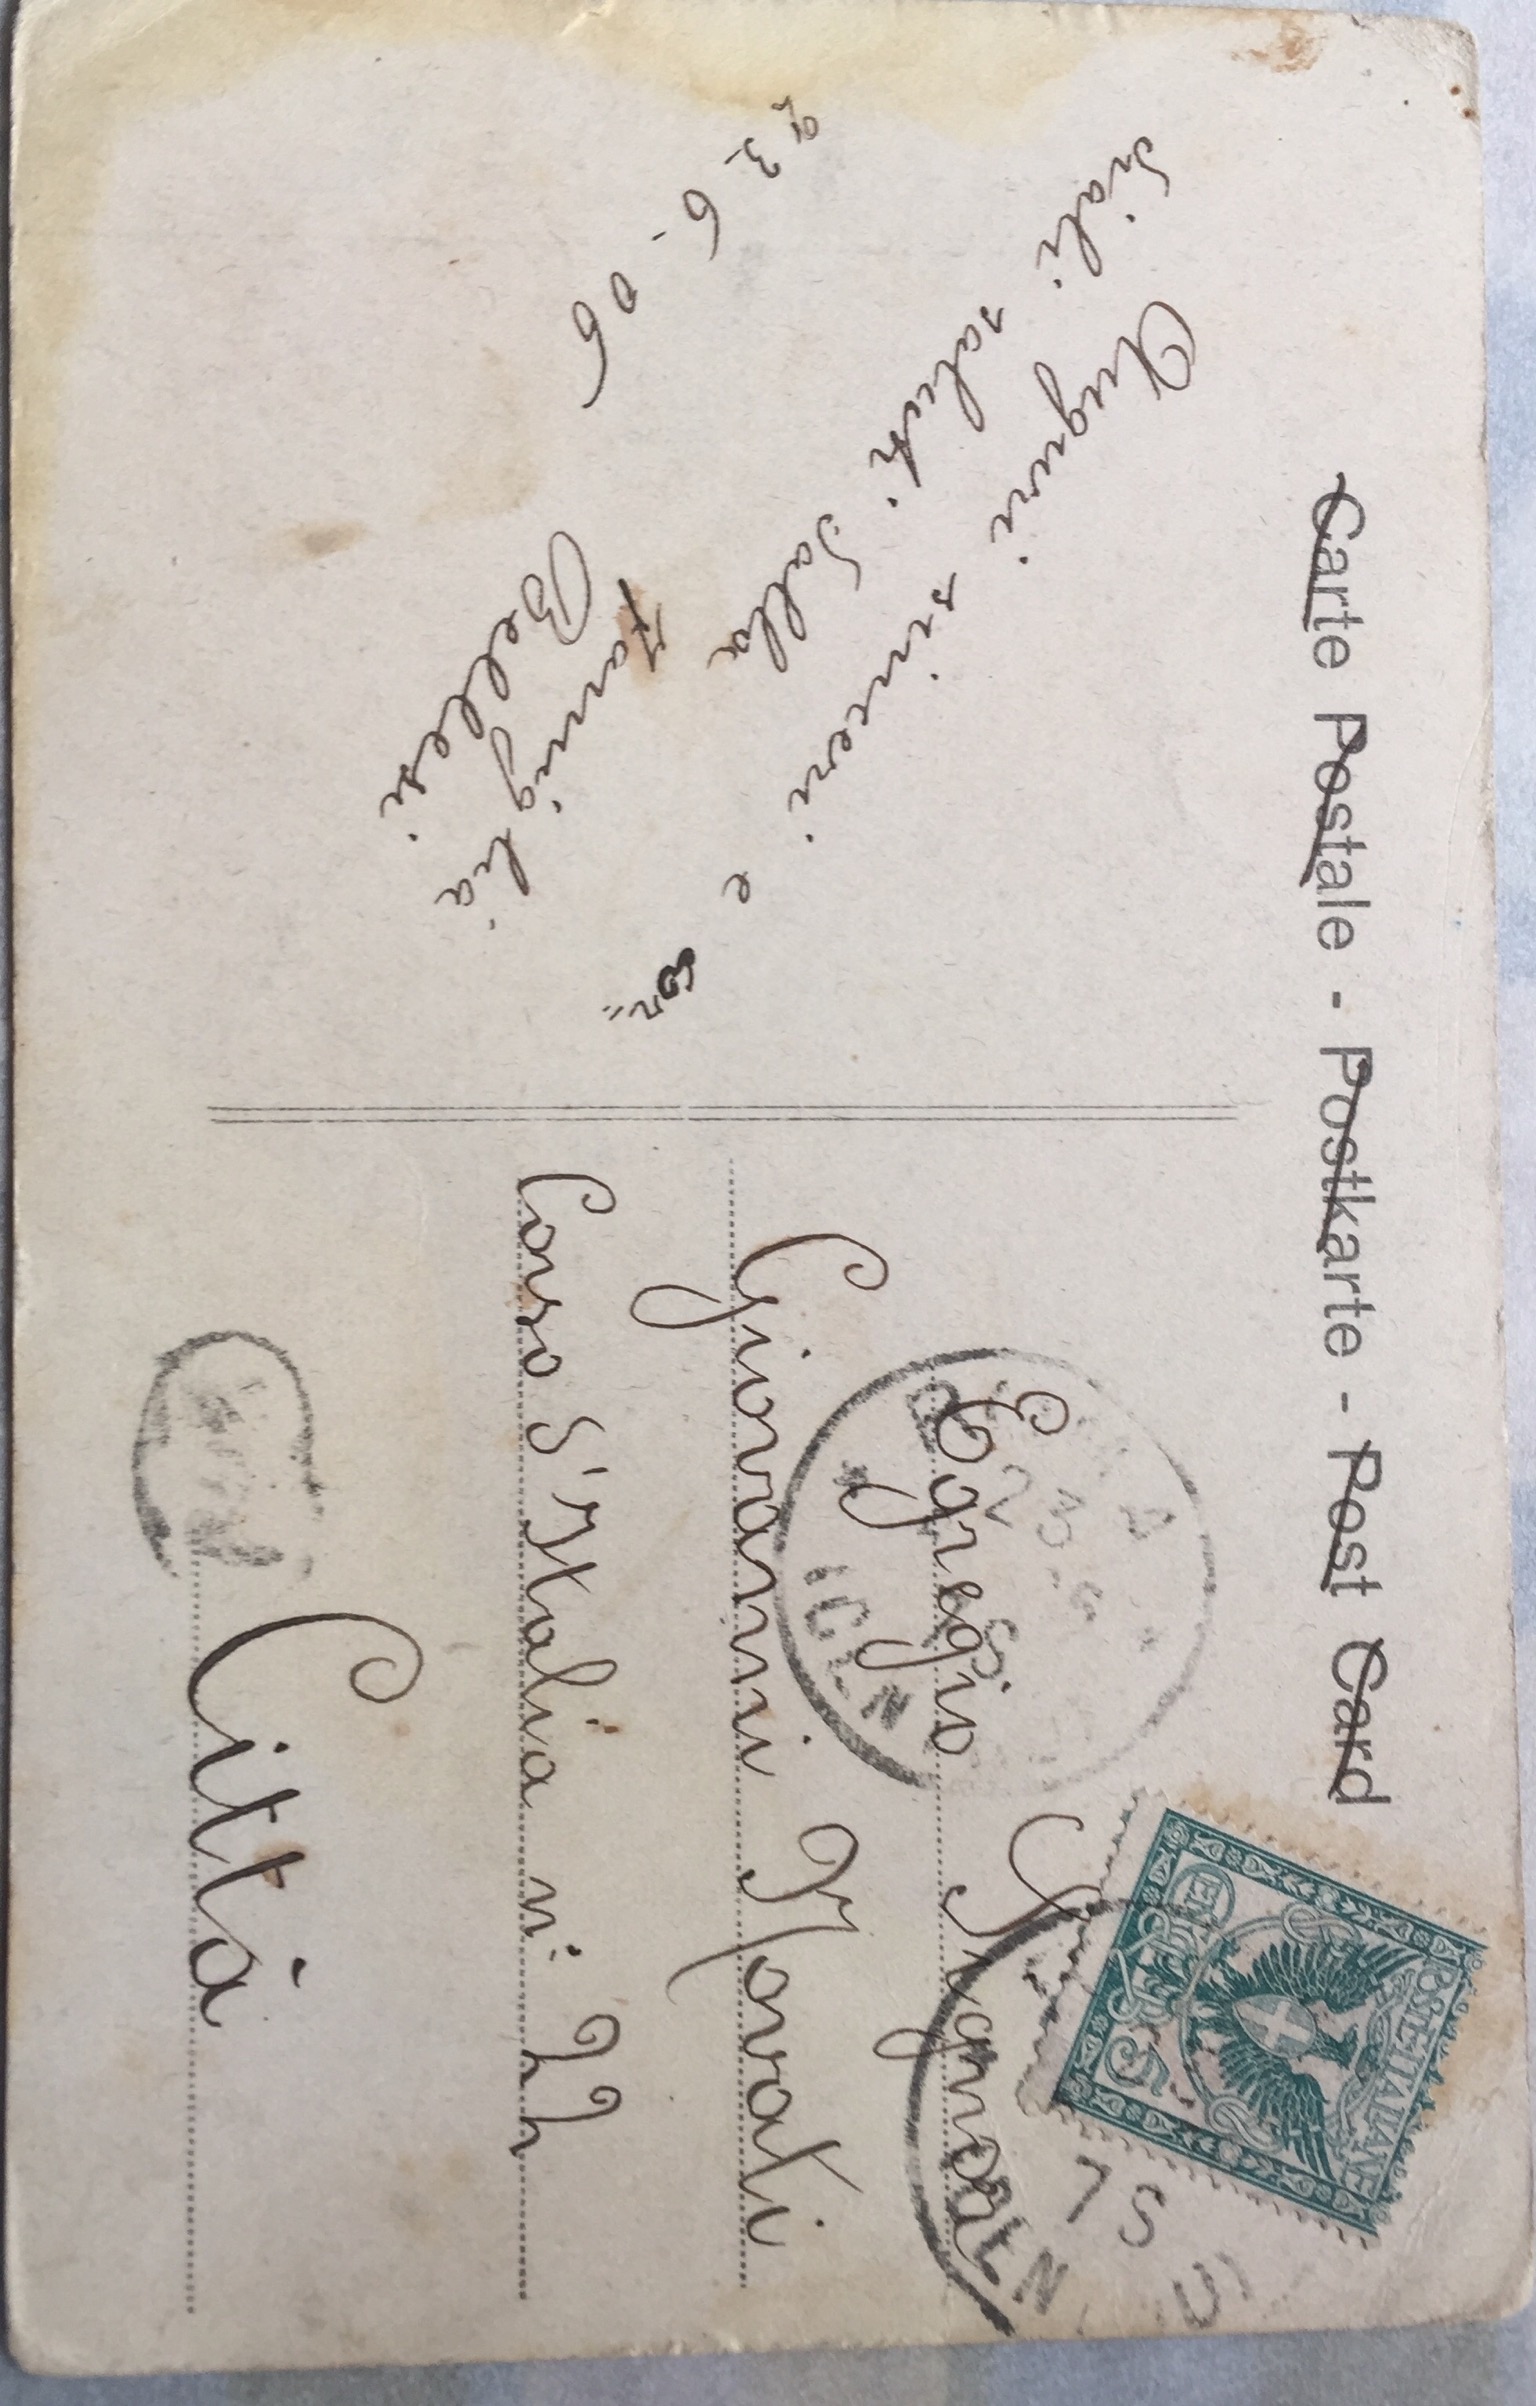 Carte Postale - Postkarte - Post Card
Auguri sinceri e cor=
diali saluti dalla
Famiglia
Bellesi
23-6-06
Egregio Signor
Giovanni Morati
Corso d'Italia n. 22
Città
POSTE ITALIANE
5
23